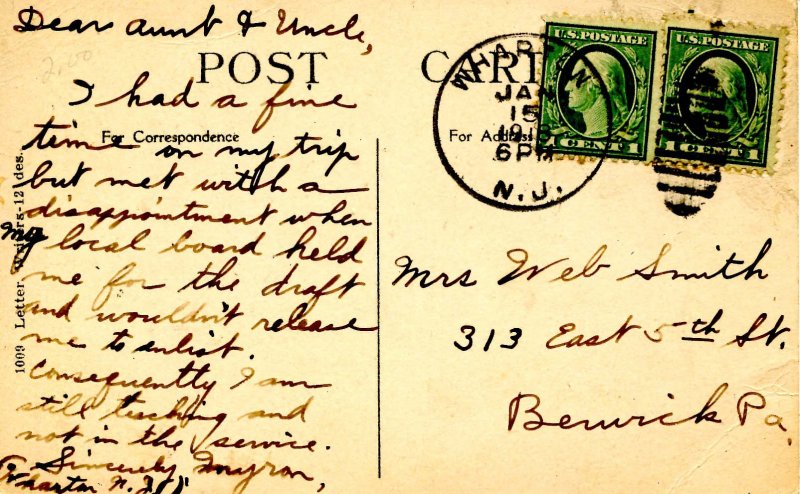 Dear Aunt & Uncle,
2.00
POST CARD
I had a fine
For Correspondence
time on my trip
but met with a
disappointment when
my local board held
me for the draft
and wouldn't release
me to enlist.
Consequently I am
still teaching and
not in the service.
Sincerely Myron,
Wharton N.J.
1009 Letter Writers-12 des.
For Address
WHARTON
JAN
15
6PM
N.J.
U.S. POSTAGE
1 CENT 1
U.S. POSTAGE
1 CENT 1
Mrs Web Smith
313 East 5th St.
Berwick Pa.